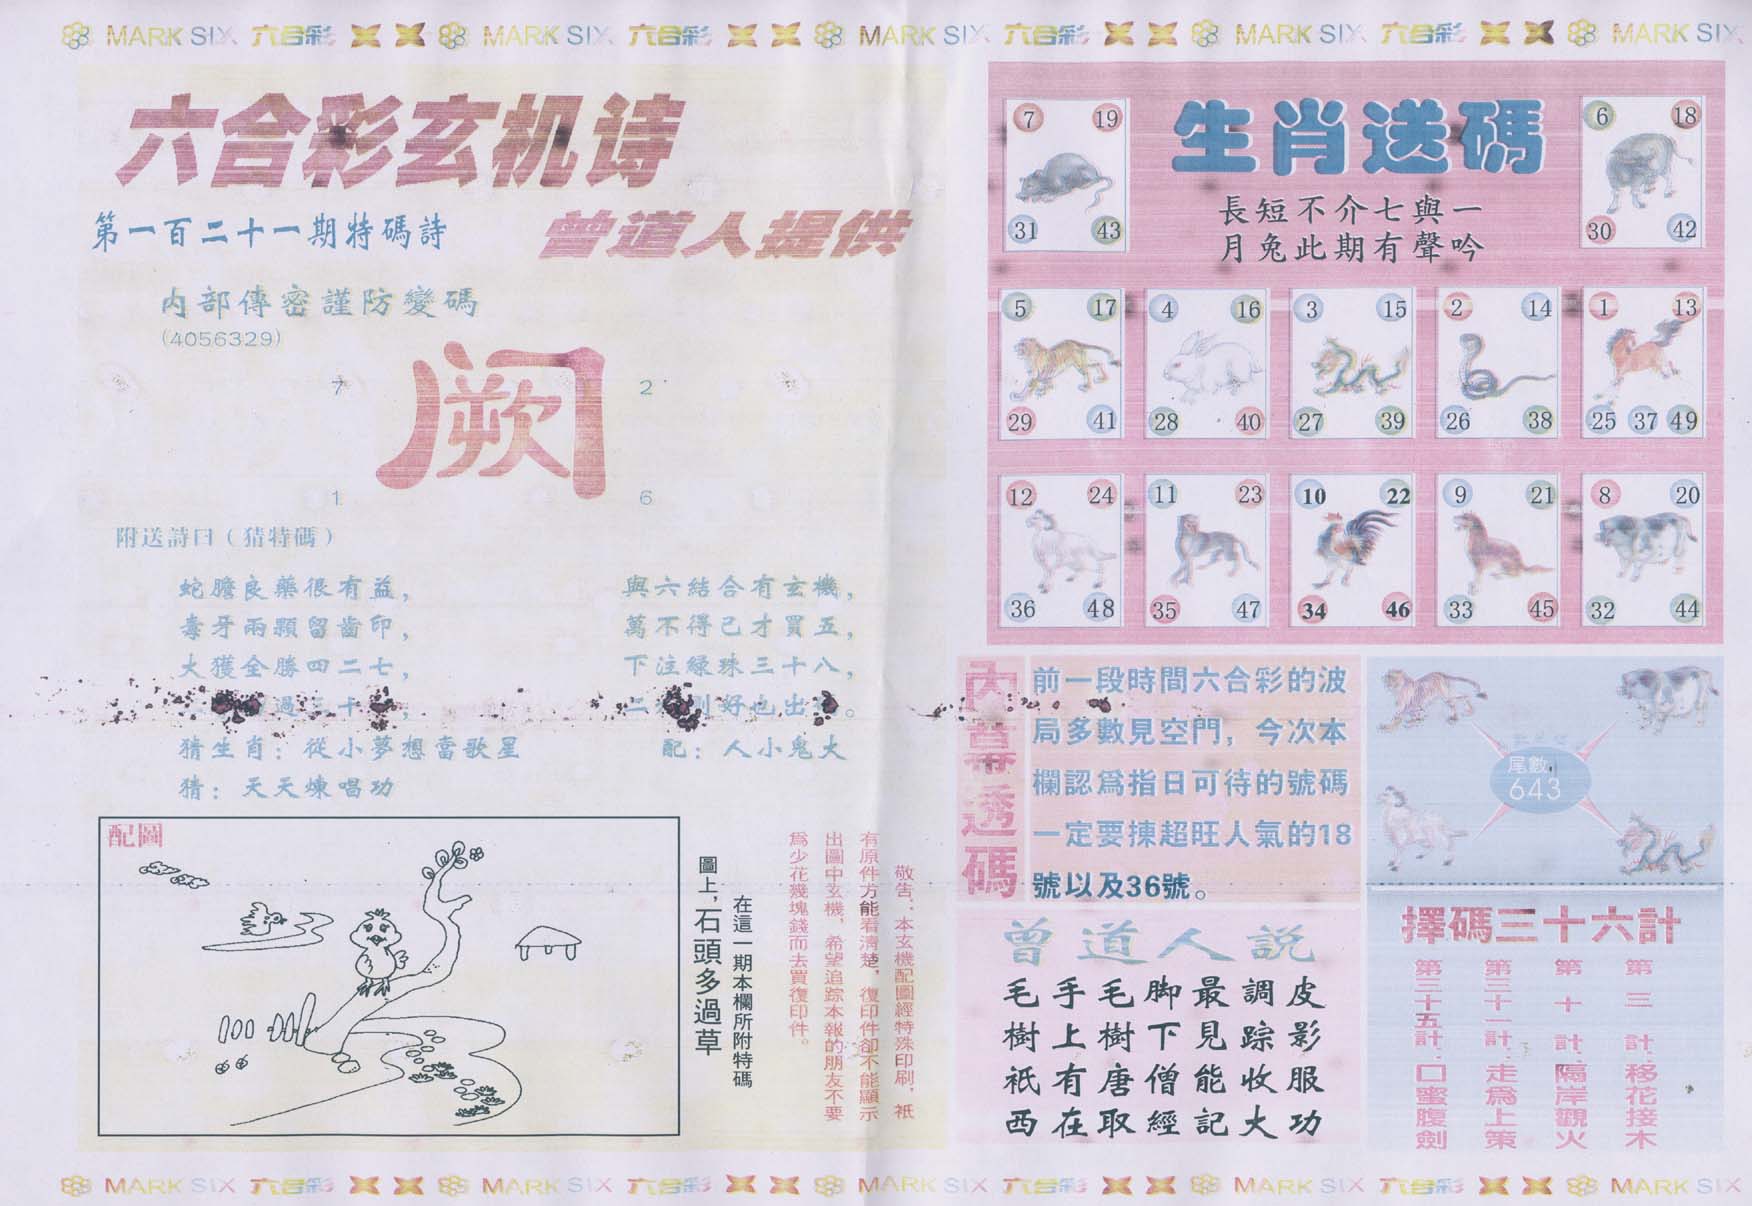 MARK SIX 六合彩 MARK SIX 六合彩 MARK SIX 六合彩 MARK SIX 六合彩 MARK SIX
六合彩玄机诗
第一百二十一期特碼詩
曾道人提供
内部傳密謹防變碼
(4056329)
7
2
阙
1
6
附送詩曰（猜特碼）
蛇膽良藥很有益，
與六結合有玄機，
毒牙兩顆留齒印，
萬不得已才買五，
大獲全勝四二七，
下注綠珠三十八，
過三十
二 別好也出 。
猜生肖：從小夢想當歌星
配：人小鬼大
猜：天天煉唱功
配圖
在這一期本欄所附特碼
圖上，石頭多過草
敬告：本玄機配圖經特殊印刷，祇
有原件方能看清楚，復印件卻不能顯示
出圖中玄機，希望追踪本報的朋友不要
爲少花幾塊錢而去買復印件。
生肖送碼
長短不介七與一
月兔此期有聲吟
7 19
31 43
6 18
30 42
5 17
29 41
4 16
28 40
3 15
27 39
2 14
26 38
1 13
25 37 49
12 24
36 48
11 23
35 47
10 22
34 46
9 21
33 45
8 20
32 44
内幕透碼
前一段時間六合彩的波
局多數見空門，今次本
欄認爲指日可待的號碼
一定要揀超旺人氣的18
號以及36號。
尾數
643
曾道人説
毛手毛脚最調皮
樹上樹下見踪影
祇有唐僧能收服
西在取經記大功
擇碼三十六計
第三計：移花接木
第十計：隔岸觀火
第三十一計：走爲上策
第三十五計：口蜜腹劍
MARK SIX 六合彩 MARK SIX 六合彩 MARK SIX 六合彩 MARK SIX 六合彩 MARK SIX